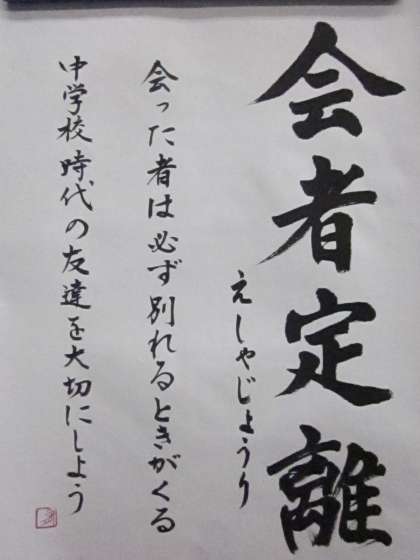 会者定離
えしゃじょうり
会った者は必ず別れるときがくる
中学校時代の友達を大切にしよう